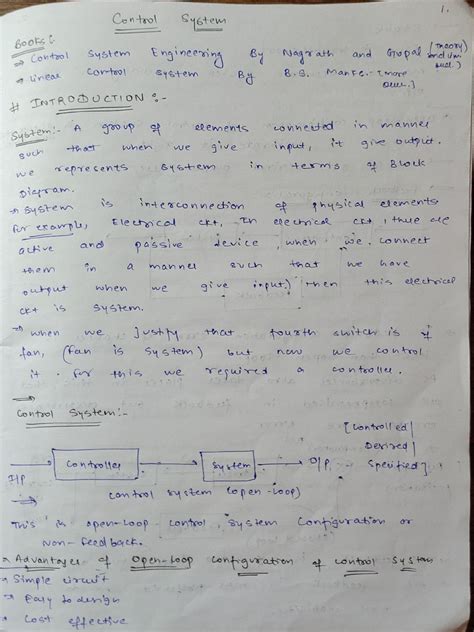 1.
Control System
Books:
→ Control System Engineering By Nagrath and Gopal (Theory and
→ Linear Control System By B.S. Manke - [more
Que.]
# INTRODUCTION :-
System:- A group of elements connected in manner
such that when we give input, it give output.
we represents system in terms of Block
Diagram.
→ System is interconnection of physical elements
for example, Electrical ckt, In electrical ckt, there are
active and passive device, when we connect
them in a manner such that we have
output when we give input.) then this electrical
ckt is system.
⇒ when we justify that fourth switch is of
fan, (fan is system) but now we control
it. for this we required a controller.
⇒
Control System:-
[Controlled/
Desired/
Specified]
I/P → Controller → System → O/P
control system (open-loop)
This is open-loop control system configuration or
Non-feedback.
→ Advantages of Open-loop configuration of control system
→ Simple circuit
→ Easy to design
→ Cost effective